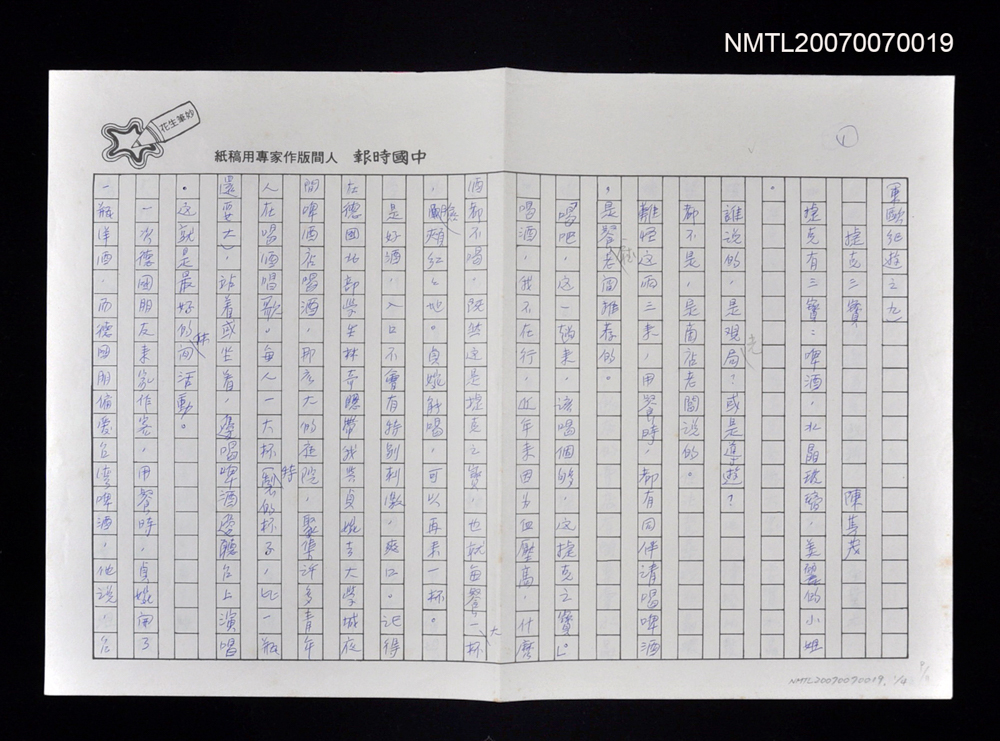 NMTL20070070019
花生筆妙
紙稿用家專作版間人 報時國中
1
東歐紀遊之九
捷克三寶
陳雋茂
捷克有三寶：啤酒，水晶玻璃，美麗的小姐
。
誰說的，是觀光局？或是導遊？
都不是，是商店老闆說的。
離妲这兩三來，用餐時，都有同伴請喝啤酒
，是餐廳老闆推荐的。
喝吧，这一趟來，該喝個夠，这捷克之寶」
喝酒，我不在行，近年來因為血壓高，什麼
酒都不喝，既然这是捷克之寶，也就每餐一大杯
，臉頰紅紅地。貞婉能喝，可以再來一杯。
是好酒，入口不會有特別刺激，爽口。記得
在德國北部學生林奇聰帶我與貞婉去大學城夜
間啤酒店喝酒，那広大的庭院，聚集許多青年
人在喝酒唱歌。每人一大杯特製的杯子，比一瓶
還要大，站着或坐着，邊喝啤酒邊聽台上演唱
。这就是最好的休閒活動。
一次德國朋友來家作客，用餐時，貞婉開了
一瓶洋酒，而德國朋偏愛台灣啤酒，他說，台
NMTL20070070019, 1/4